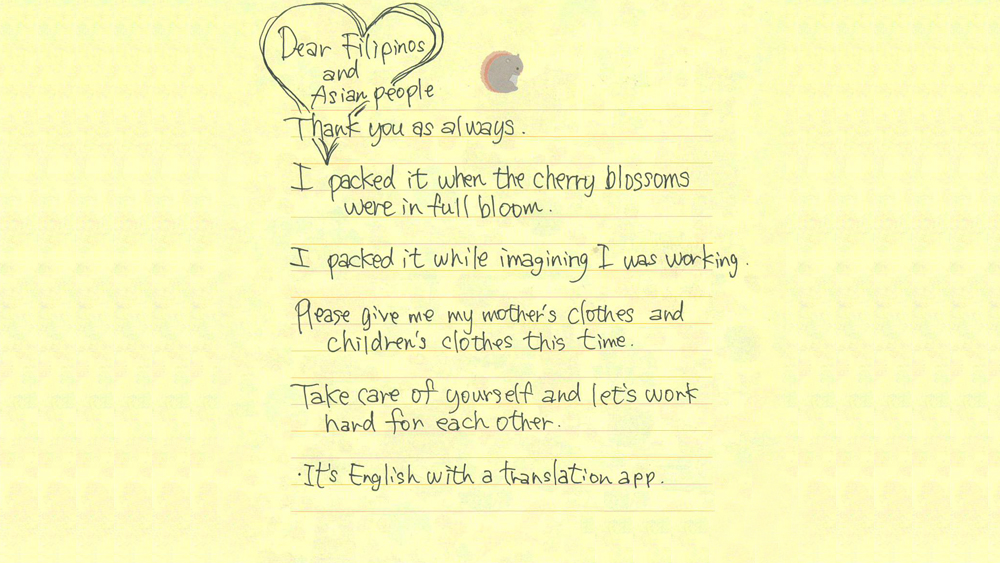 Dear Filipinos
and
Asian people
Thank you as always.
I packed it when the cherry blossoms
were in full bloom.
I packed it while imagining I was working.
Please give me my mother's clothes and
children's clothes this time.
Take care of yourself and let's work
hard for each other.
·It's English with a translation app.